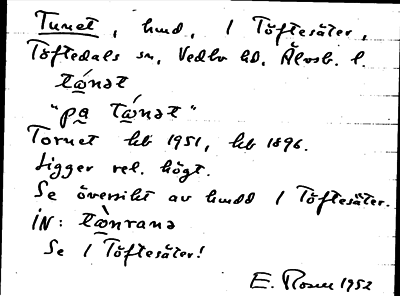 Tunet, hmd, 1 Töftesäter,
Töftedals sn, Vedbo hd, Älvsb. l.
tǻnət
"pa tǻnət"
Tornet kb 1951, kb 1896.
Ligger rel. högt.
Se översikt av hmdd 1 Töftesäter.
IN: tὼnrana
Se 1 Töftesäter!
E. Rosell 1952